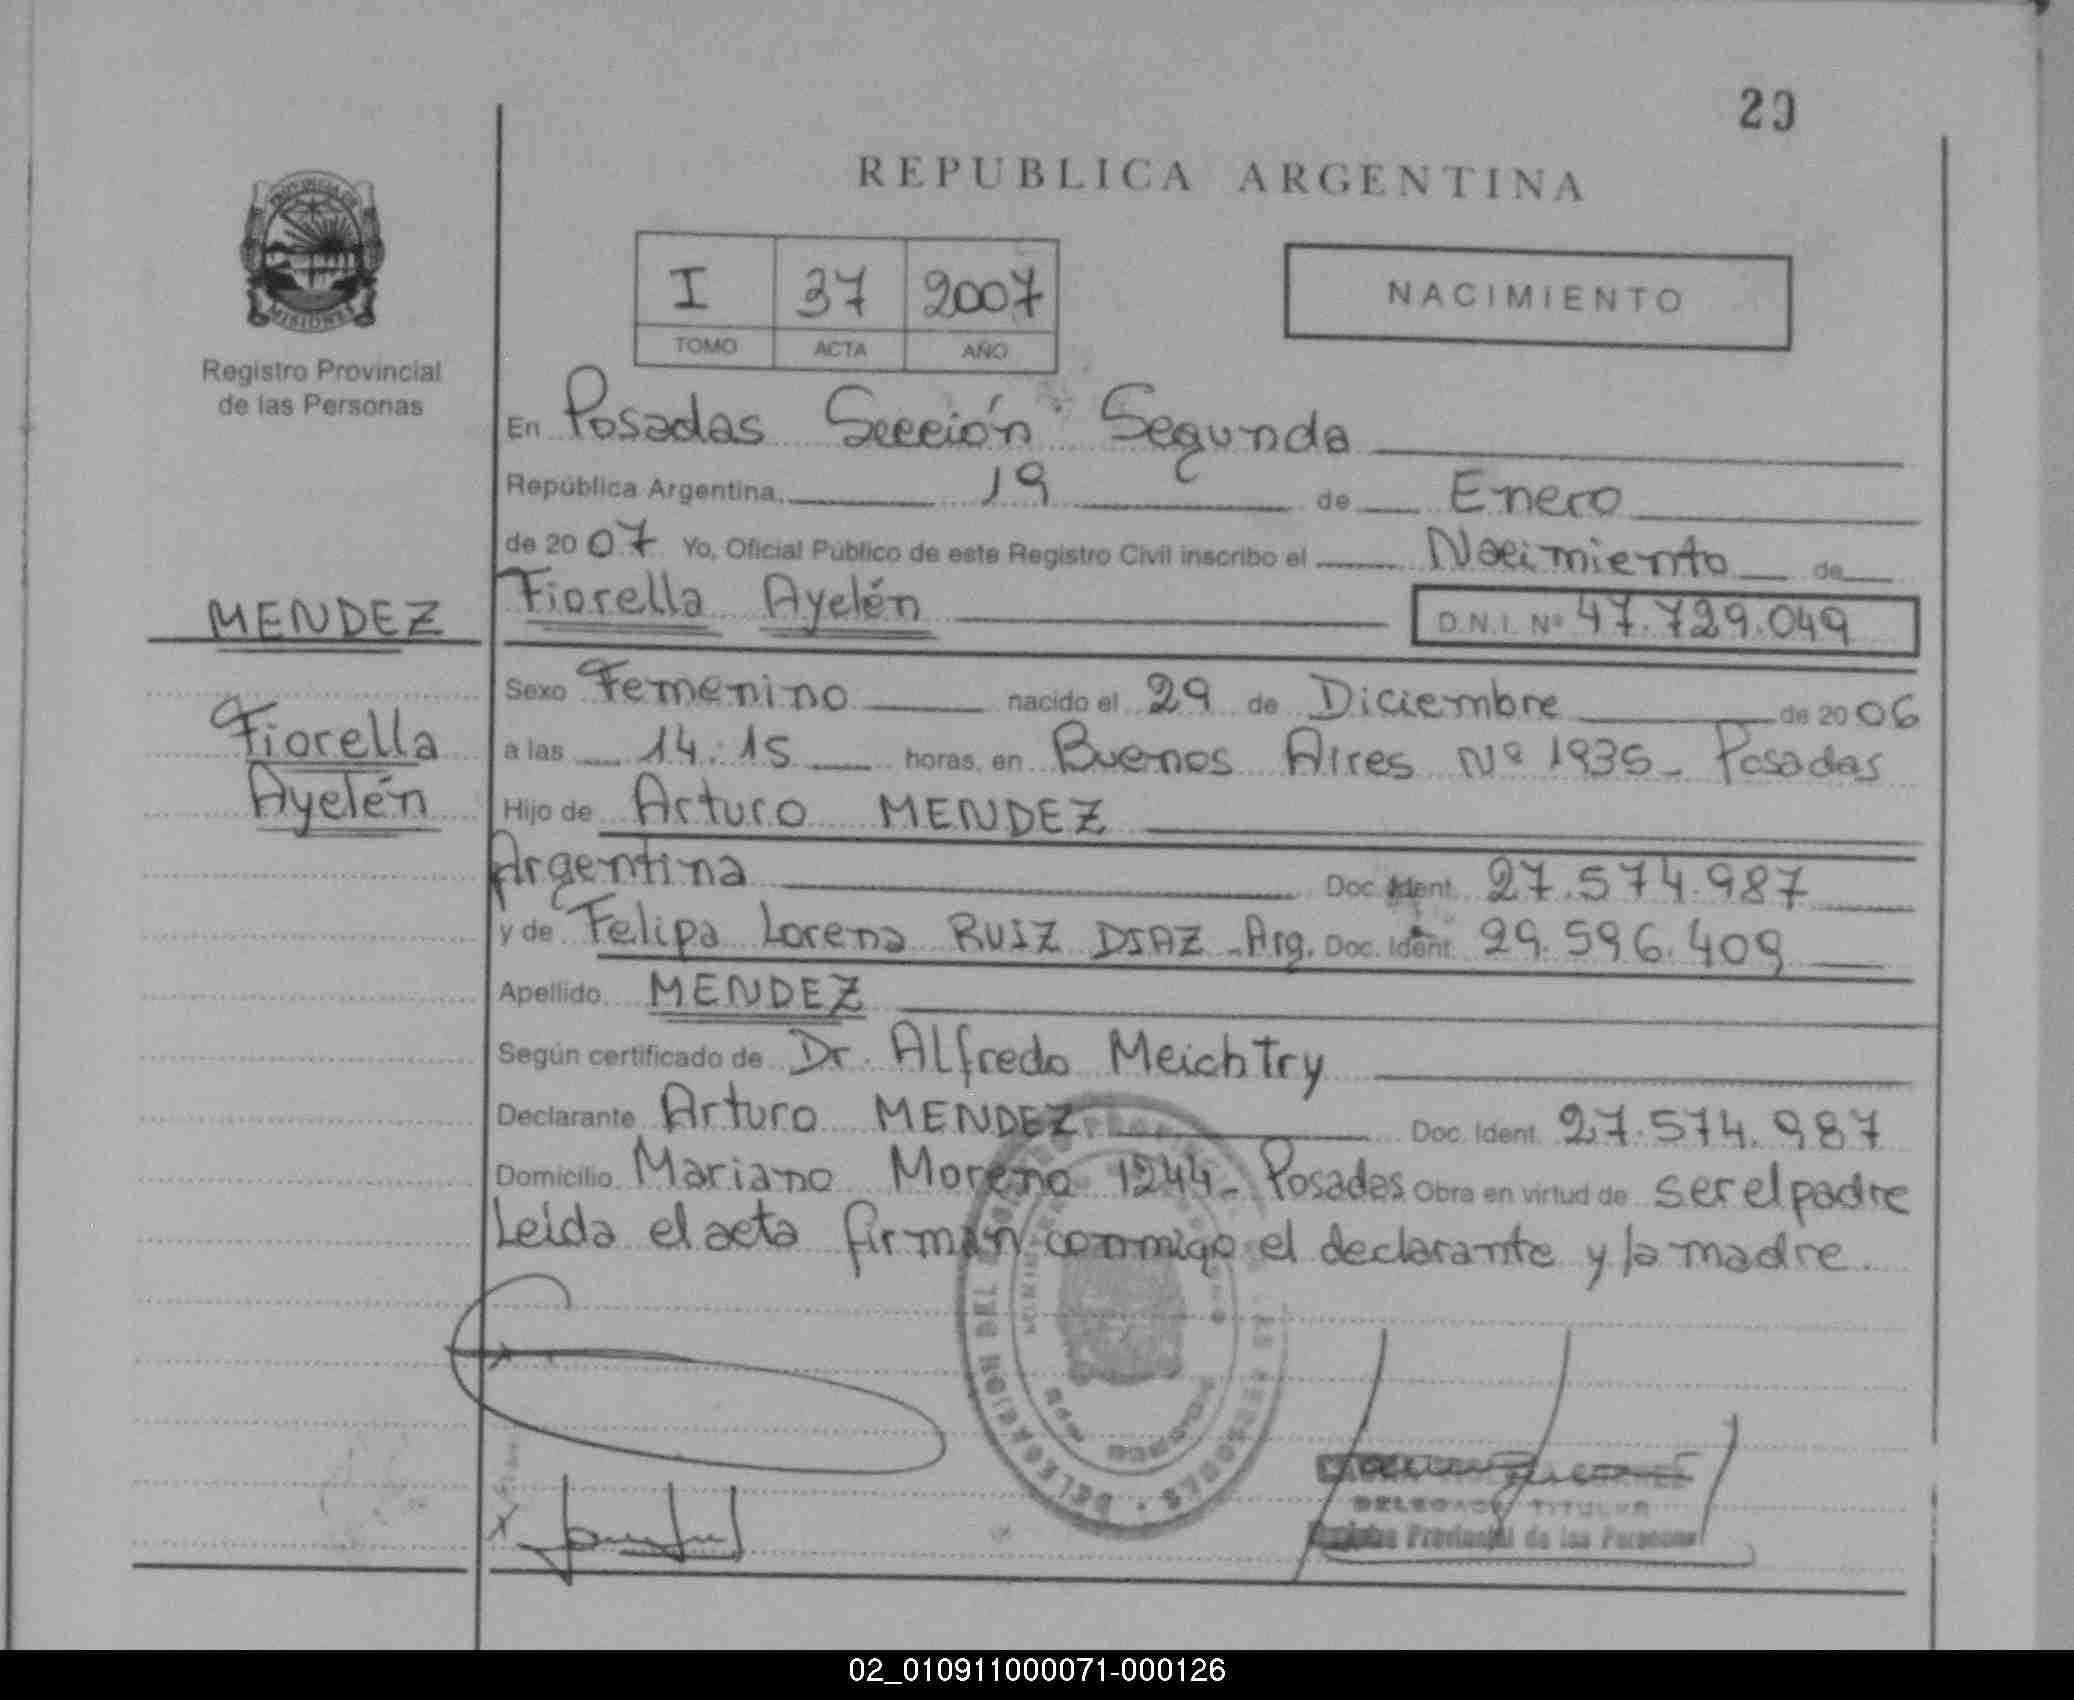 29
REPUBLICA ARGENTINA
PROVINCIA DE
MISIONES
Registro Provincial
de las Personas
I 37 2007
TOMO ACTA AÑO
NACIMIENTO
En Posadas Sección Segunda
República Argentina, 19 de Enero
de 2007 Yo, Oficial Público de este Registro Civil inscribo el Nacimiento de
Fiorella Ayelén D.N.I. Nº 47.729.049
MENDEZ
Fiorella
Ayelén
Sexo Femenino nacido el 29 de Diciembre de 2006
a las 14:15 horas, en Buenos Aires Nº 1935 - Posadas
Hijo de Arturo MENDEZ
Argentina Doc. Ident. 27.574.987
y de Felipa Lorena RUIZ DIAZ - Arg. Doc. Ident. 29.596.409
Apellido MENDEZ
Según certificado de Dr. Alfredo Meichtry
Declarante Arturo MENDEZ Doc. Ident. 27.574.987
Domicilio Mariano Moreno 1244 - Posadas Obra en virtud de ser el padre
Leída el acta firman conmigo el declarante y la madre.
DELEGACION DEL
DELEGADO TITULAR
Provincial de las Personas
02_010911000071-000126